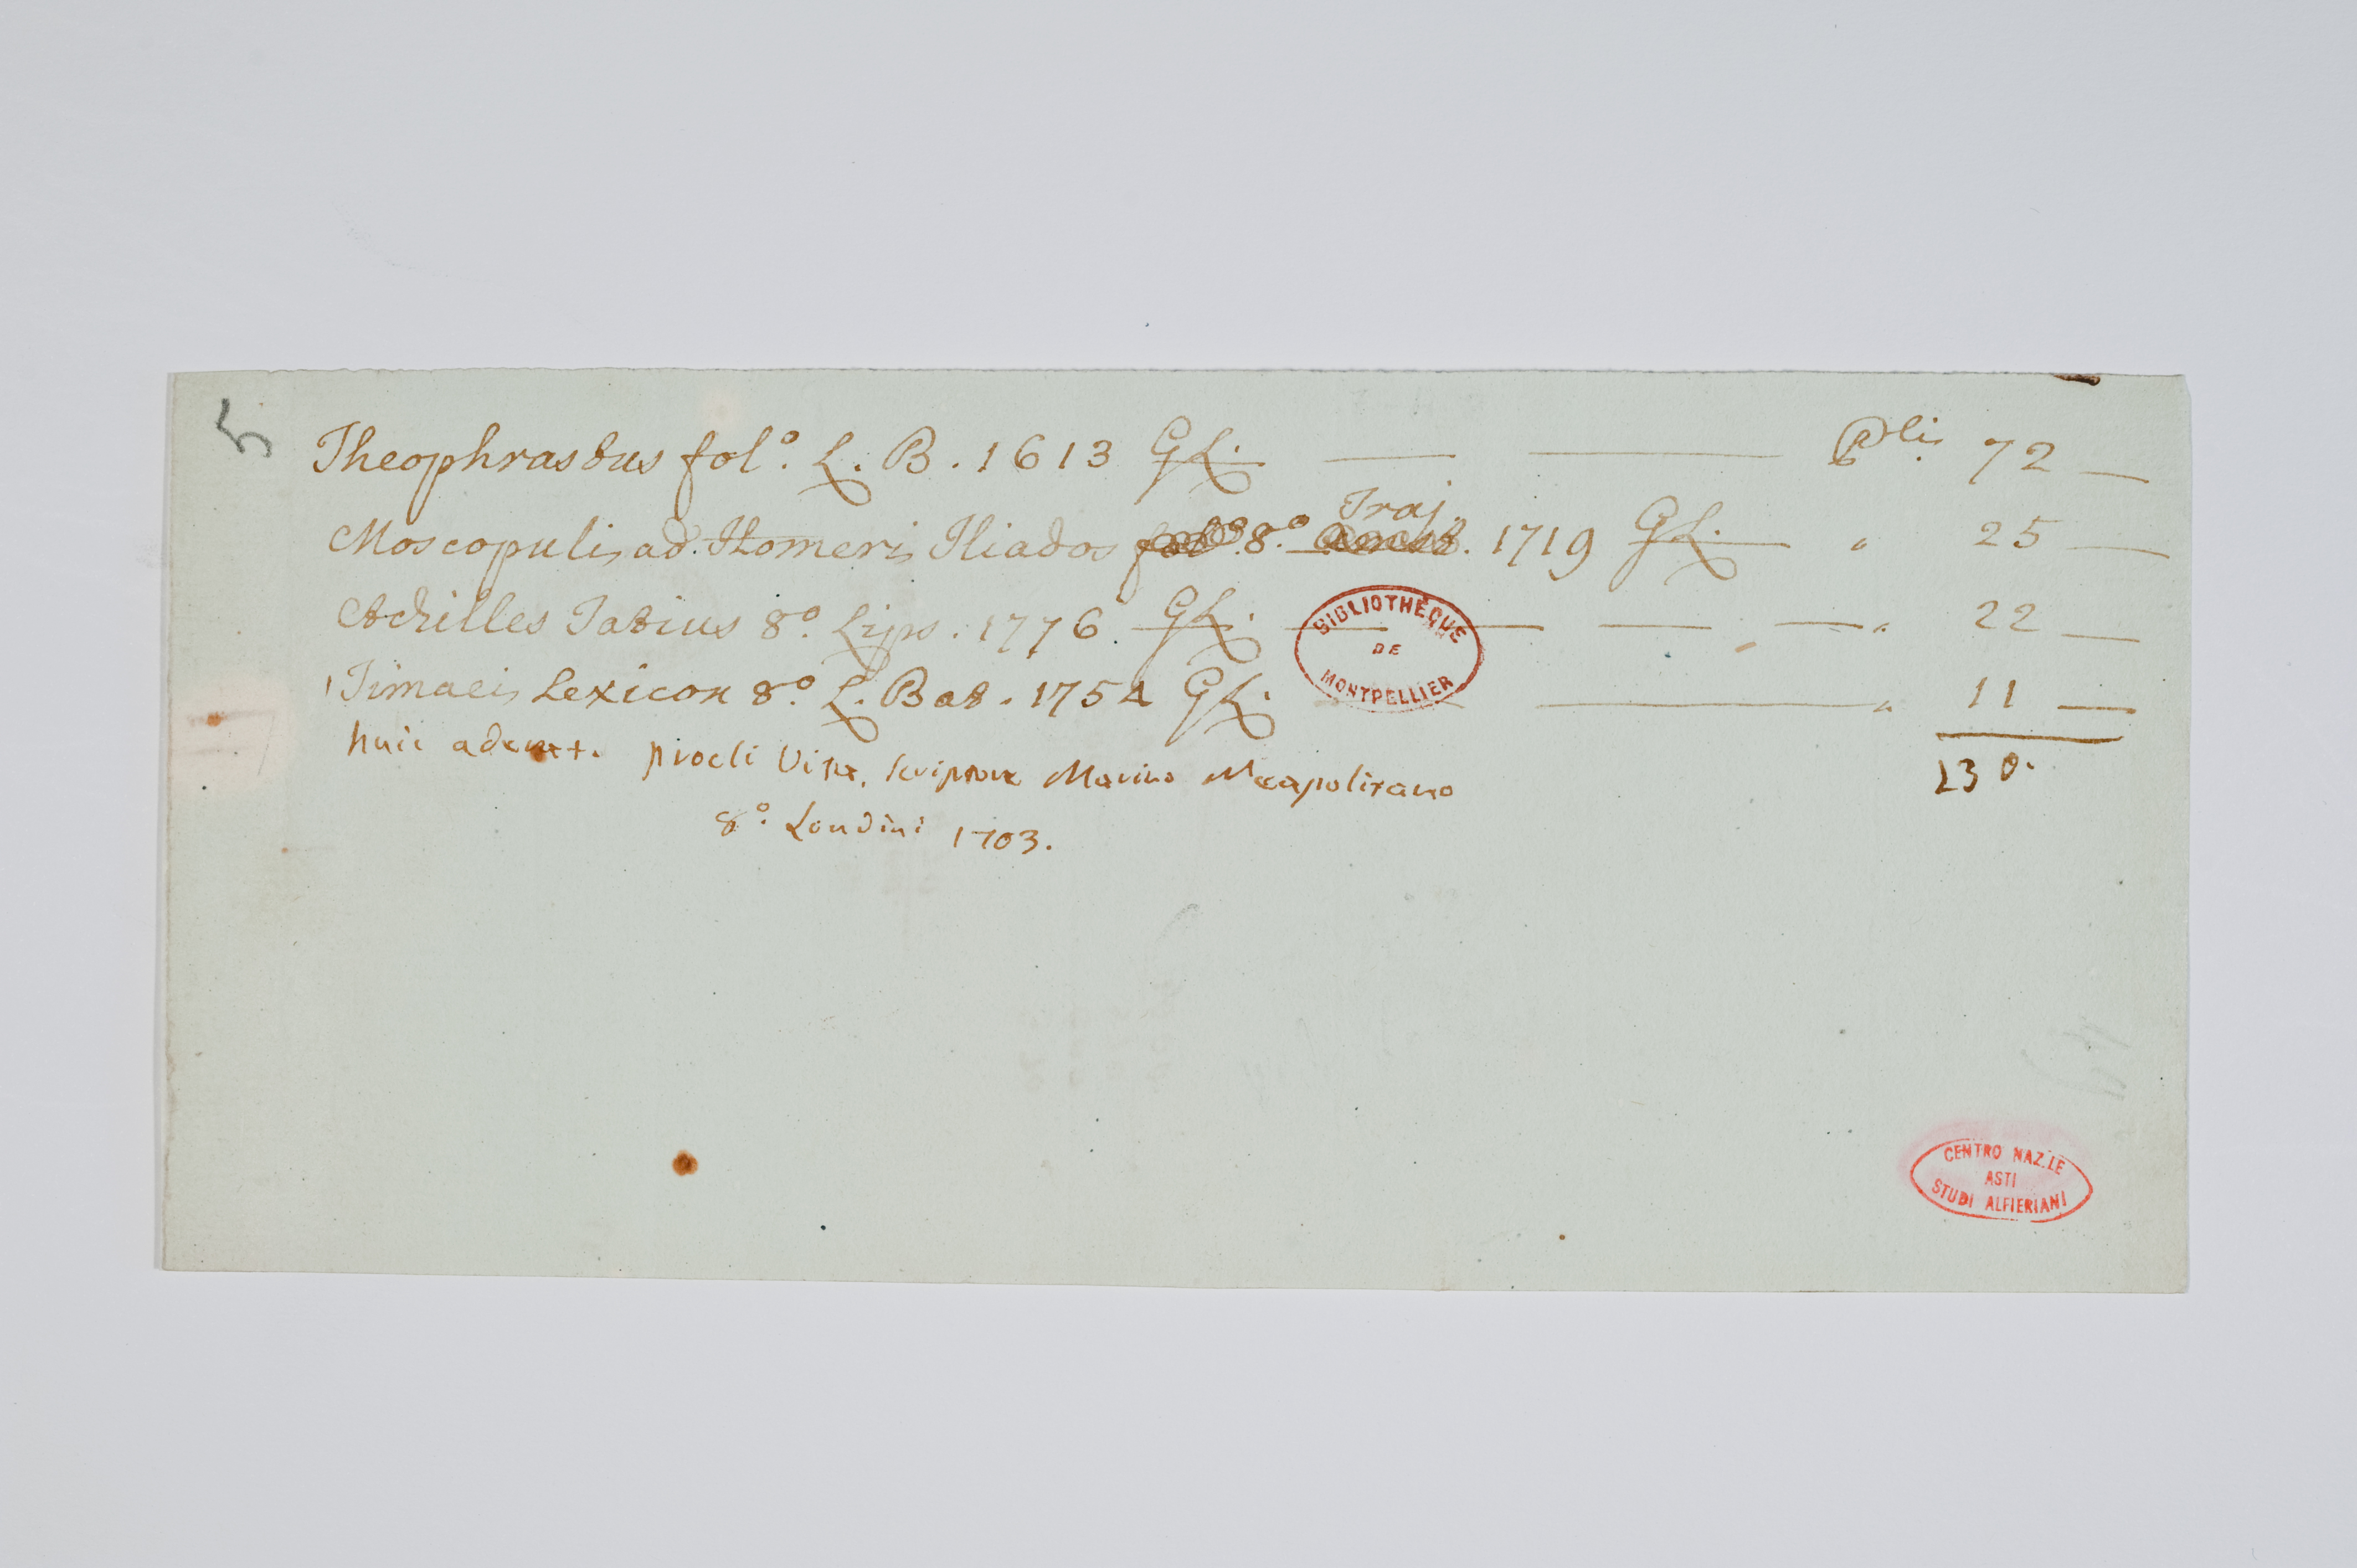 5
Theophrastus fol.º L. B. 1613 GL. — — Pli. 72 —
Moscopuli ad Homeri Iliados 8.º Traj. 1719 GL. — " 25 —
Achilles Tatius 8.º Lips. 1776. GL. — — — — — " 22 —
Timaei Lexicon 8.º L. Bat. 1754 GL. — — " 11 —
130.
huic adenat. procli Vita, scriptore Marino Neapolitano
8.º Londini 1703.
BIBLIOTHÈQUE
DE
MONTPELLIER
CENTRO NAZ.LE
ASTI
STUDI ALFIERIANI